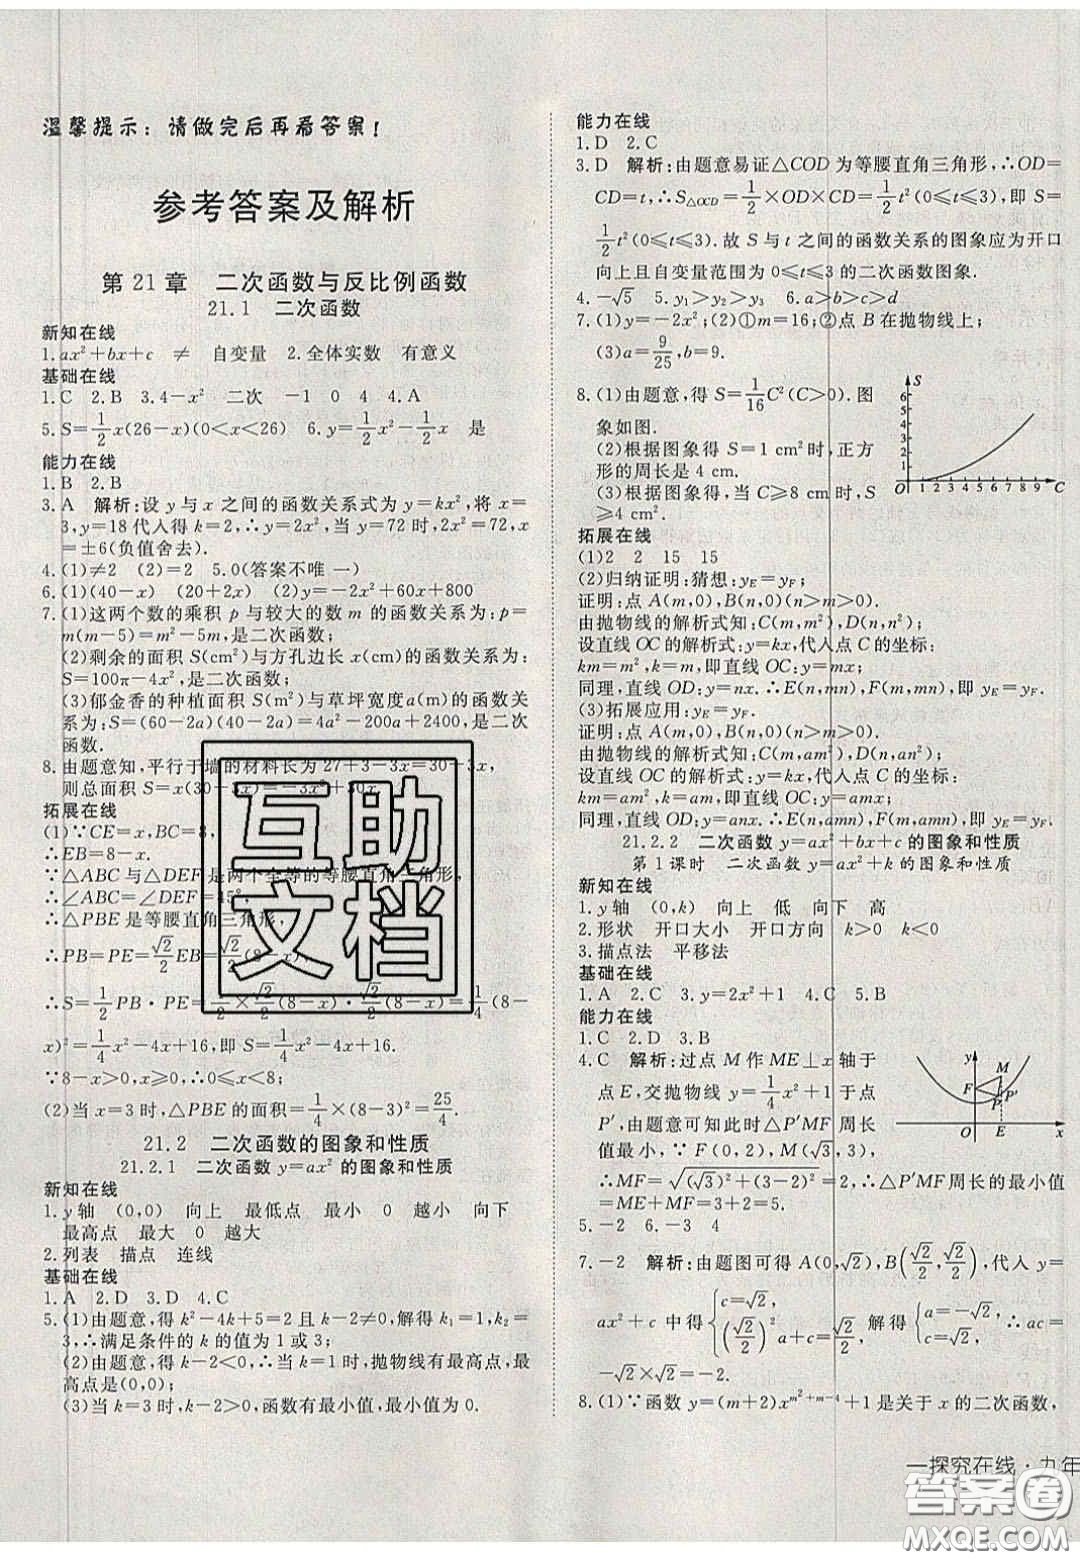 温馨提示：请做完后再看答案！
参考答案及解析
第21章　二次函数与反比例函数
21.1　二次函数
新知在线
1.ax²+bx+c　≠　自变量　2.全体实数　有意义
基础在线
1.C　2.B　3.4-x²　二次　-1　0　4　4.A
5.S=1/2x(26-x)(0<x<26)　6.y=1/2x²-1/2x　是
能力在线
1.B　2.B
3.A　解析:设 y 与 x 之间的函数关系式为 y=kx²,将 x=
3,y=18代入得 k=2,∴y=2x²,当 y=72 时,2x²=72,x
=±6(负值舍去).
4.(1)≠2　(2)=2　5.0(答案不唯一)
6.(1)(40-x)　(20+2x)　(2)y=-2x²+60x+800
7.(1)这两个数的乘积 p 与较大的数 m 的函数关系为:p=
m(m-5)=m²-5m,是二次函数;
(2)剩余的面积 S(cm²)与方孔边长 x(cm)的函数关系为:
S=100π-4x²,是二次函数;
(3)郁金香的种植面积 S(m²)与草坪宽度a(m)的函数关
系为:S=(60-2a)(40-2a)=4a²-200a+2400,是二次
函数.
8.由题意知,平行于墙的材料长为27+3-3x=30-3x,
则总面积 S=x(30-3x)=-3x²+30x.
拓展在线
(1)∵CE=x,BC=8,
∴EB=8-x.
∵△ABC 与△DEF 是两个全等的等腰直角三角形,
∴∠ABC=∠DEF=45°.
∴△PBE 是等腰直角三角形,
∴PB=PE=√2/2EB=√2/2(8-x).
∴S=1/2PB·PE=1/2×√2/2(8-x)·√2/2(8-x)=1/4(8-
x)²=1/4x²-4x+16,即 S=1/4x²-4x+16.
∵8-x>0,x≥0,∴0≤x<8;
(2)当 x=3 时,△PBE 的面积=1/4×(8-3)²=25/4.
21.2　二次函数的图象和性质
21.2.1　二次函数 y=ax² 的图象和性质
新知在线
1.y轴　(0,0)　向上　最低点　最小　0　越小　向下
最高点　最大　0　越大
2.列表　描点　连线
基础在线
1.A　2.D　3.D　4.C
5.(1)由题意,得 k²-4k+5=2 且 k-2≠0,解得 k₁=1,k₂=
3,∴满足条件的 k 的值为 1 或 3;
(2)由题意,得 k-2<0,∴当 k=1 时,抛物线有最高点,最
高点是(0,0);
(3)当 k=3 时,k-2>0,函数有最小值,最小值为 0.
能力在线
1.D　2.C
3.D　解析:由题意易证△COD 为等腰直角三角形,∴OD=
CD=t,∴S△OCD=1/2×OD×CD=1/2t²(0≤t≤3),即 S=
1/2t²(0≤t≤3).故 S 与 t 之间的函数关系的图象应为开口
向上且自变量范围为 0≤t≤3 的二次函数图象.
4.-√5　5.y₁>y₃>y₂　6.a>b>d>c
7.(1)y=-2x²;(2)①m=16;②点 B 在抛物线上;
(3)a=9/25,b=9.
8.(1)由题意,得 S=1/16C²(C>0).图
象如图.
(2)根据图象得 S=1 cm²时,正方
形的周长是 4 cm.
(3)根据图象得,当 C≥8 cm时,S
≥4 cm².
S
6
5
4
3
2
1
O 1 2 3 4 5 6 7 8 9 C
拓展在线
(1)2　2　15　15
(2)归纳证明:猜想:yE=yF;
证明:点 A(m,0),B(n,0)(n>m>0).
由抛物线的解析式知:C(m,m²),D(n,n²).
设直线 OC 的解析式:y=kx,代入点 C 的坐标:
km=m²,k=m,即直线 OC:y=mx;
同理,直线 OD:y=nx.∴E(n,mn),F(m,mn),即 yE=yF.
(3)拓展应用:yE=yF.
证明:点 A(m,0),B(n,0)(n>m>0).
由抛物线的解析式知:C(m,am²),D(n,an²).
设直线 OC 的解析式:y=kx,代入点 C 的坐标:
km=am²,k=am,即直线 OC:y=amx;
同理,直线 OD:y=anx.∴E(n,amn),F(m,amn),即 yE=yF.
21.2.2　二次函数 y=ax²+bx+c 的图象和性质
第1课时　二次函数 y=ax²+k 的图象和性质
新知在线
1.y轴　(0,k)　向上　低　向下　高
2.形状　开口大小　开口方向　k>0　k<0
3.描点法　平移法
基础在线
1.A　2.C　3.y=2x²+1　4.C　5.B
能力在线
1.C　2.D　3.B
4.C　解析:过点 M 作 ME⊥x 轴于
点 E,交抛物线 y=1/4x²+1于点
P′,由题意可知此时△P′MF 周长
值最小,∵F(0,2),M(√3,3),
∴MF=√((√3)²+(3-2)²)=2,∴△P′MF周长的最小值
=ME+MF=3+2=5.
y
M
F
P
P′
O E x
5.-2　6.-3　4
7.-2　解析:由题图可得 A(0,√2),B(√2/2,√2/2),代入 y=
ax²+c 中得{c=√2,(√2/2)²a+c=√2/2,解得{a=-√2,c=√2,∴ac=
-√2×√2=-2.
8.(1)∵函数 y=(m+2)x^(m²+m-4)+1是关于 x 的二次函数,
一探究在线·九年
互助
文档
答案圈
MXQE.COM